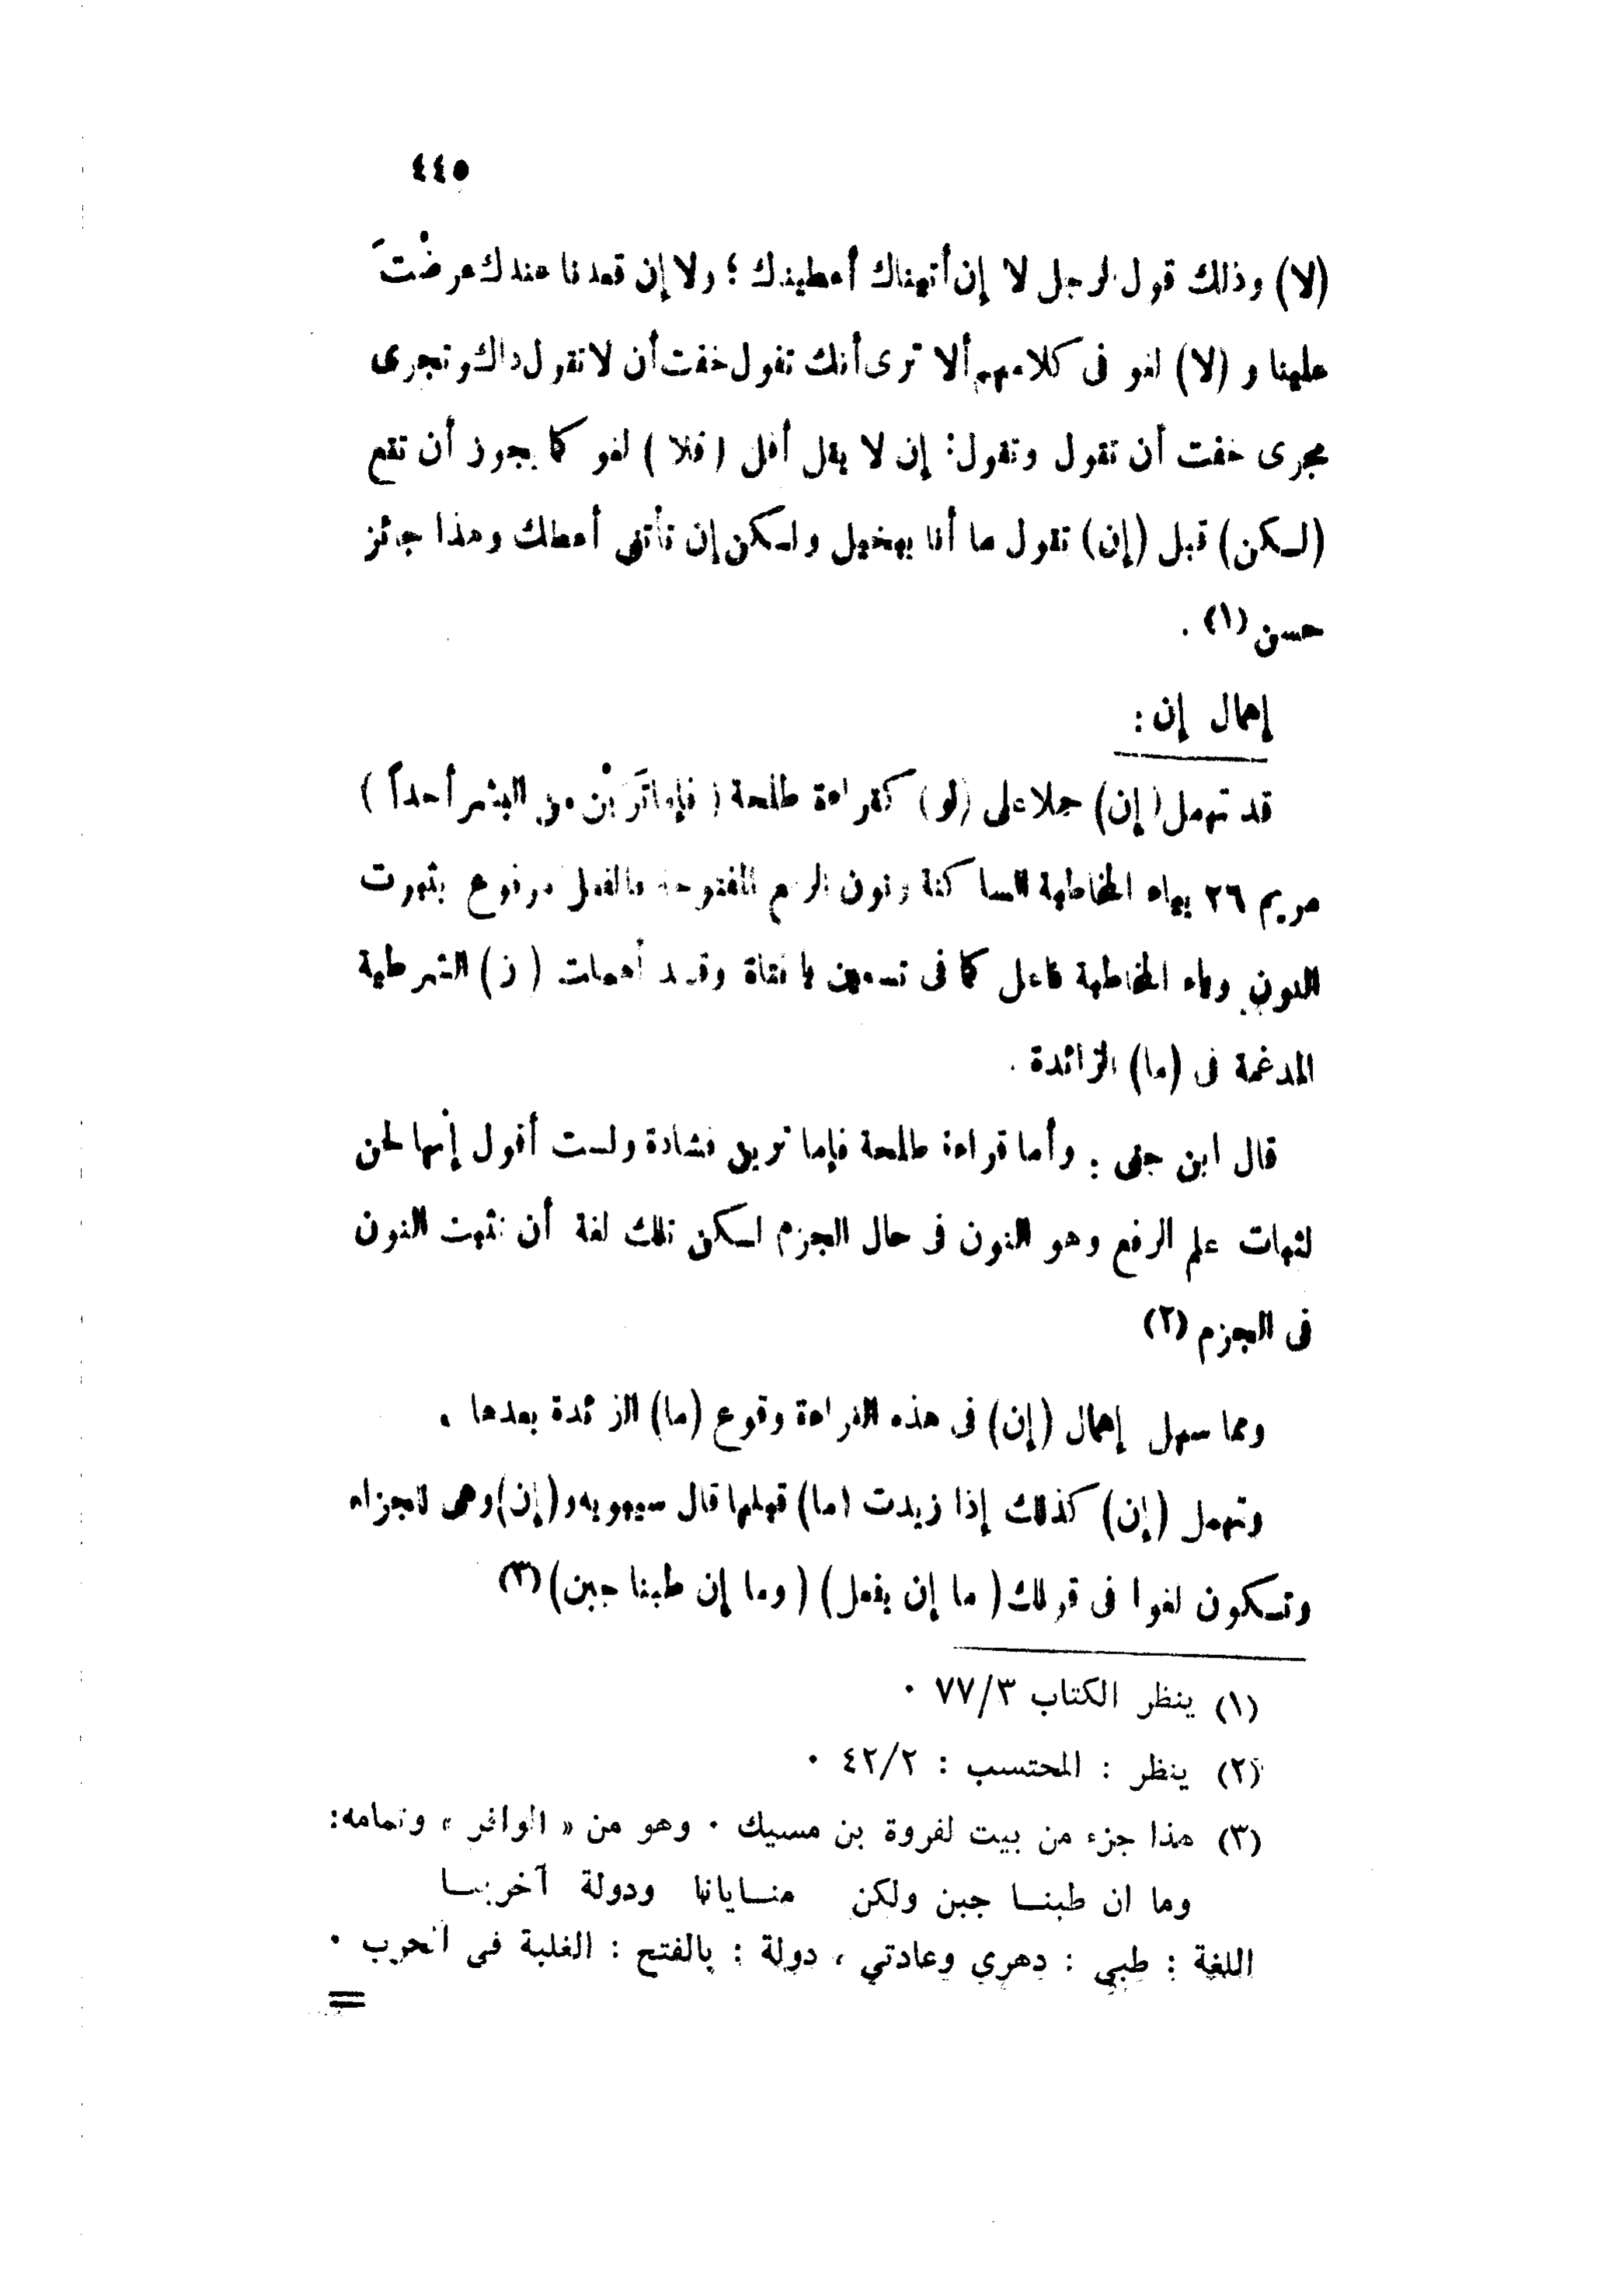 ٤٤٥
(لا) وذلك قول الرجل لا إن أتيناك أعطيتك ؛ ولا إن قعدنا عندك عرضْتَ
علينا و (لا) لغو فى كلامهم ألا ترى أنك تقول خفت أن لا تقول ذاك وتجرى
مجرى خفت أن تقول وتقول: إن لا يقل أقل (فلا) لغو كما يجوز أن تقع
(لـكن) قبل (إن) تقول ما أنا ببخيل ولـكن إن تأتنى أعطك وهذا جائز
حسن (١) .
إهمال إن :
قد تهمل (إن) حملا على (لو) كقراءة طلحة ( فإما تَرَيْنَ من البشر أحداً )
مريم ٢٦ بياء المخاطبة الساكنة ونون الرفع المفتوحة فالفعل مرفوع بثبوت
النون وياء المخاطبة فاعل كما فى تسعين يا فتاة وقد أهملت ( إن ) الشرطية
المدغمة فى (ما) الزائدة .
قال ابن جنى : وأما قراءة طلحة فإما ترين فشاذة ولست أقول إنها لحن
لثبات علم الرفع وهو النون فى حال الجزم لـكن تلك لغة أن تثبت النون
فى الجزم (٢)
ومما سهل إهمال (إن) فى هذه القراءة وقوع (ما) الزائدة بعدها .
وتهمل (إن) كذلك إذا زيدت (ما) قبلها قال سيبويه و(إن) وهى للجزاء
وتـكون لغوا فى قولك ( ما إن يفعل ) ( وما إن طبنا جبن ) (٣)
(١) ينظر الكتاب ٧٧/٣ ٠
(٢) ينظر : المحتسب : ٤٢/٢ ٠
(٣) هذا جزء من بيت لفروة بن مسيك ٠ وهو من « الوافر » وتمامه:
وما ان طبنـا جبن ولكن منـايانا ودولة آخرينـا
اللغة : طبي : دهري وعادتي ، دولة : بالفتح : الغلبة في الحرب ٠
=